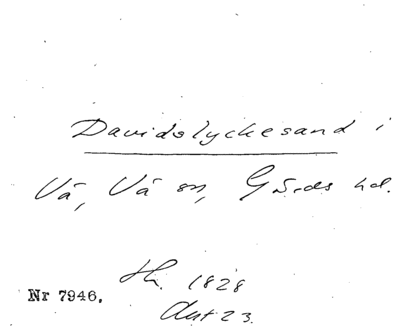 Davidslyckesand i
Vä, Vä sn, Gärds hd.
Hh. 1828
Akt 23.
Nr 7946.